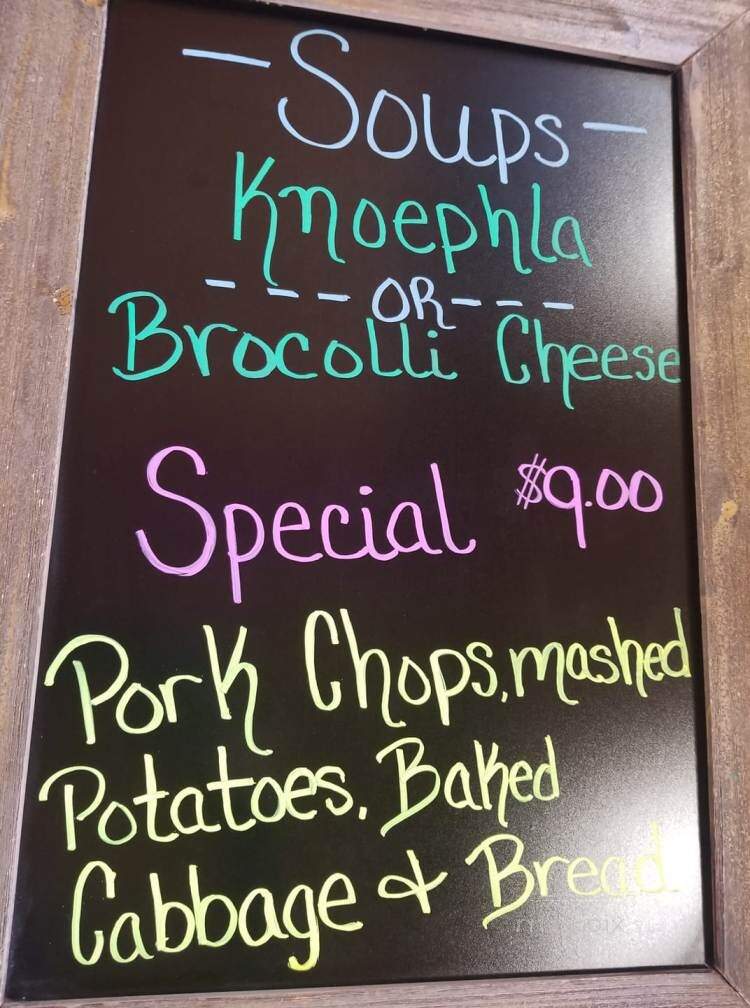 - Soups -
Knoephla
- - - OR - - -
Brocolli Cheese
Special $9.00
Pork Chops, mashed
Potatoes, Baked
Cabbage & Bread